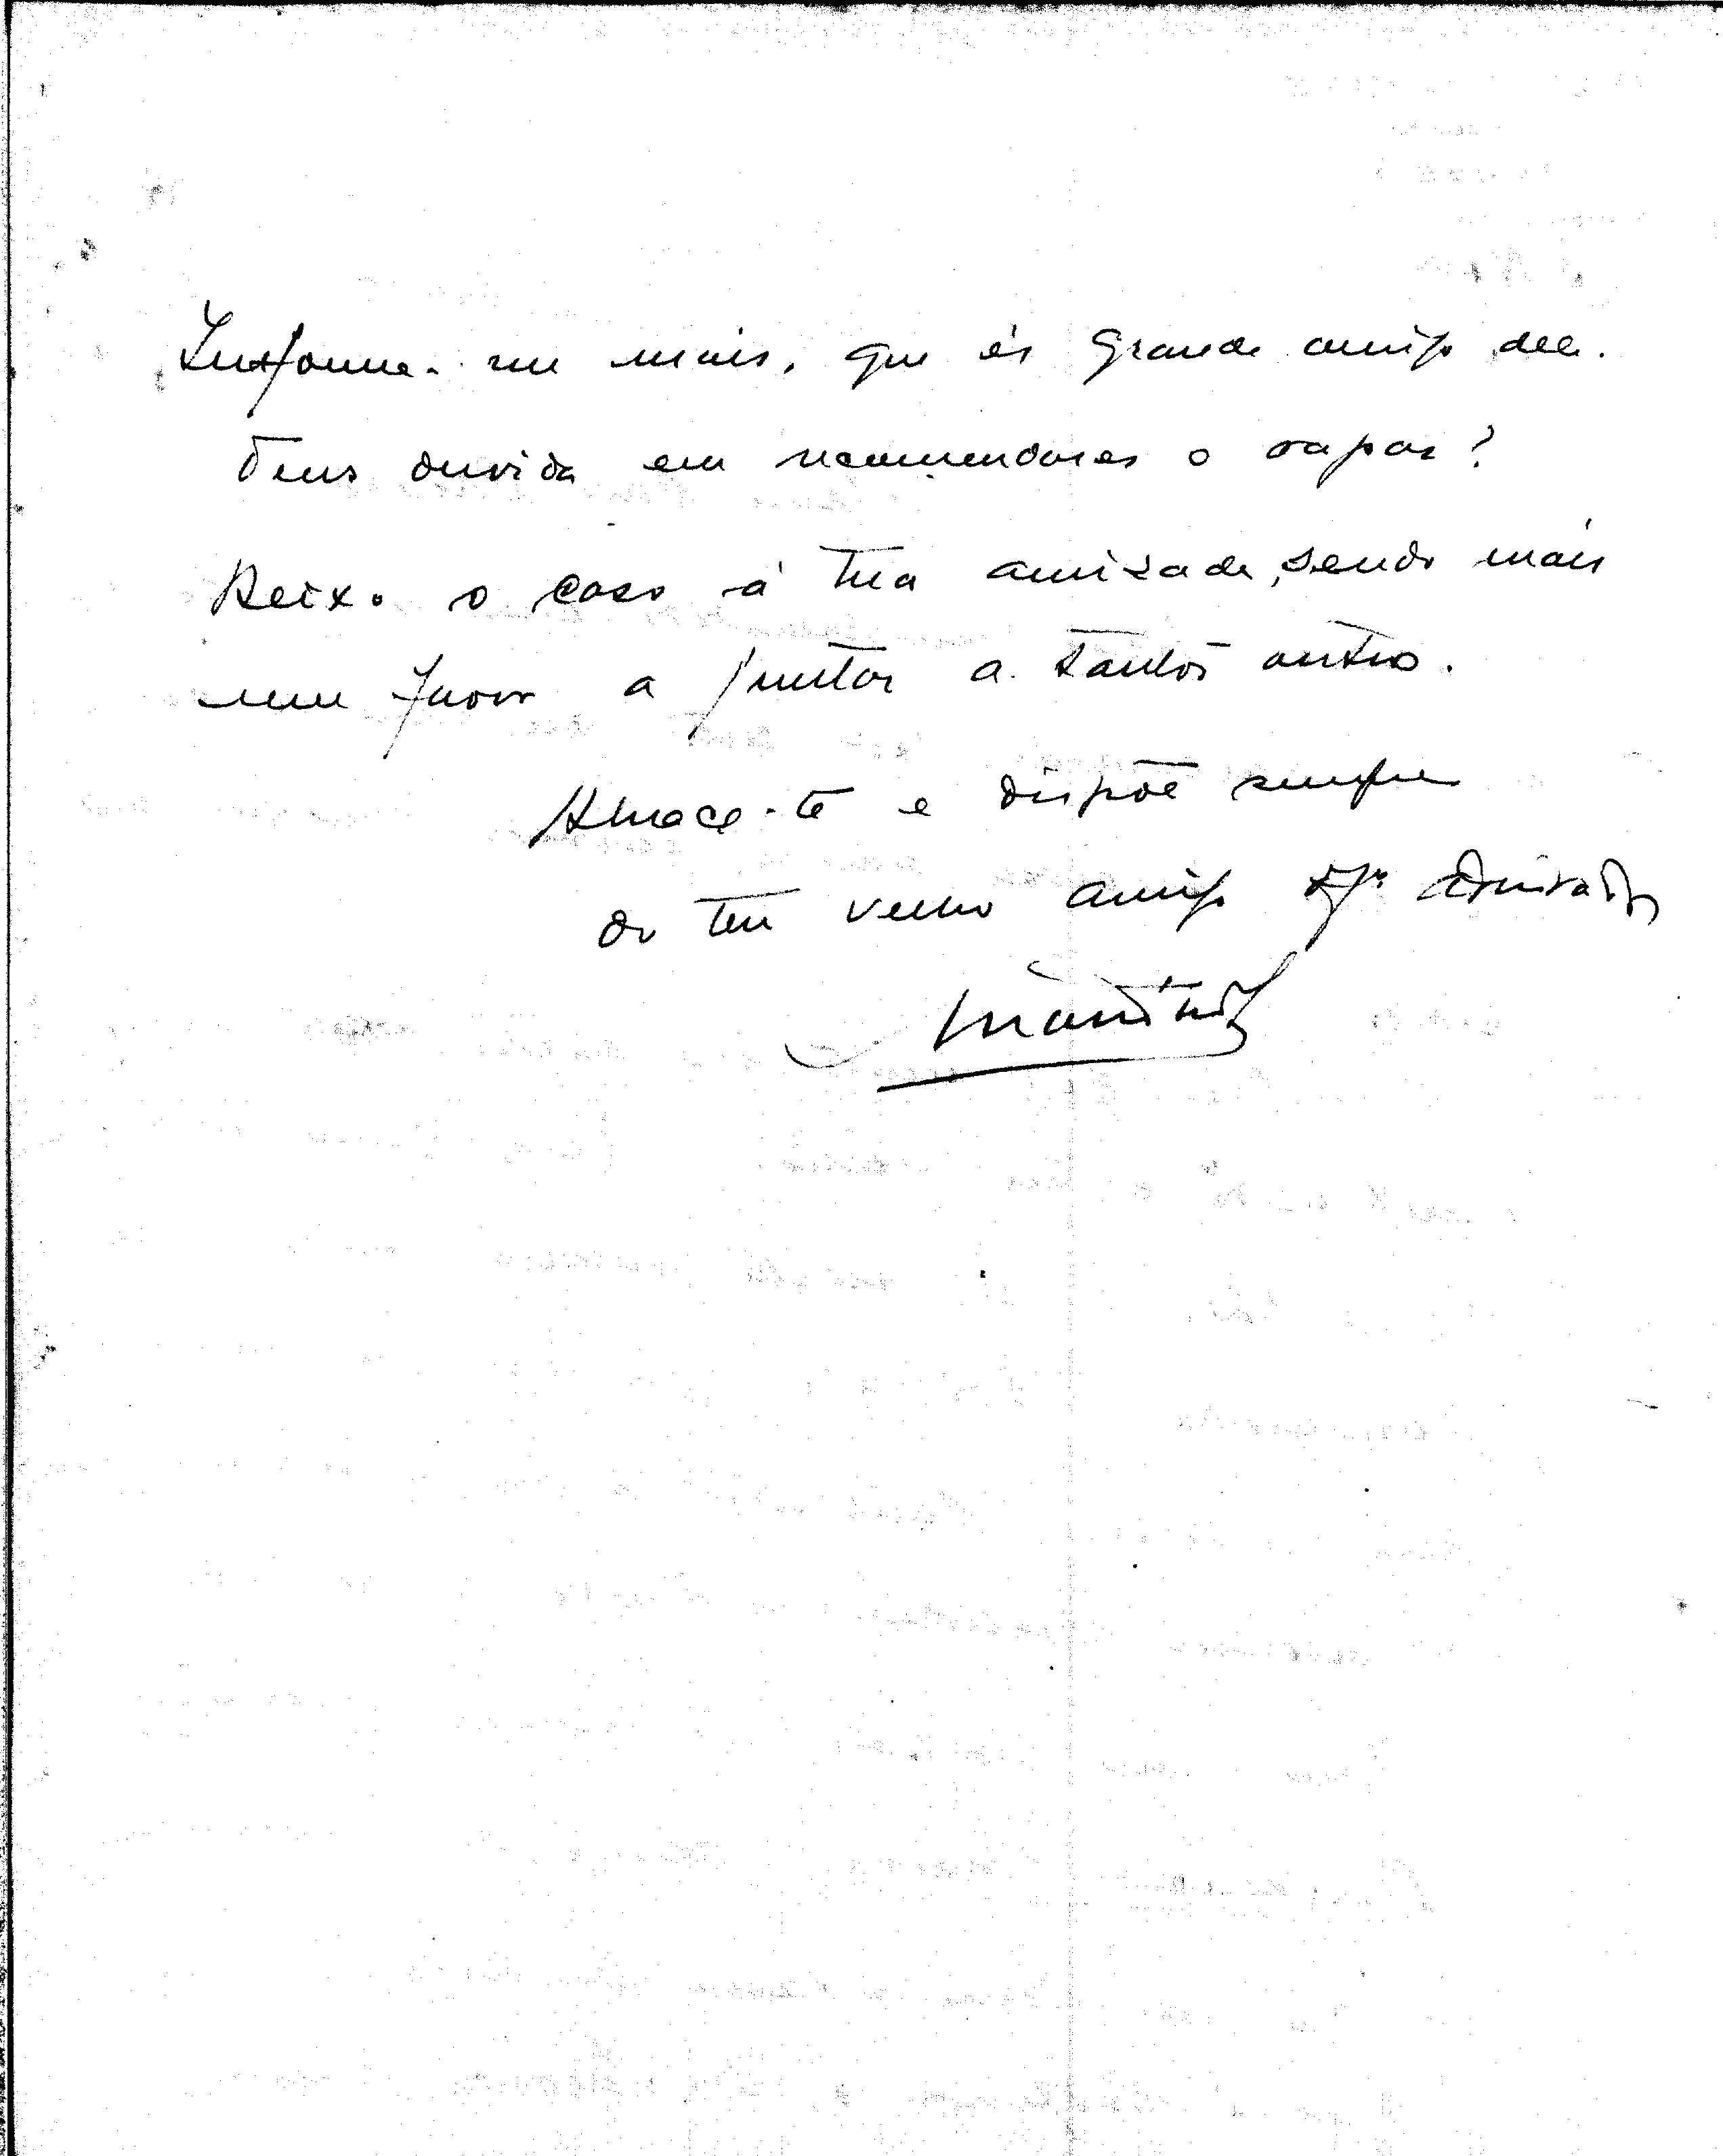 Informa-me mais, que és grande amigo delle.
Tens duvida em recommendares o rapaz?
Deixo o caso á tua amizade, sendo mais
um favor a juntar a tantos outros.
Abraça-te e dispõe sempre
do teu velho amigo admirador